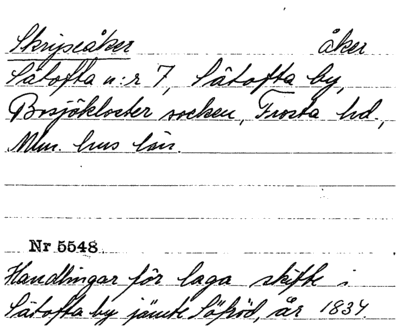 Skripseåker åker
Sätofta n:r 7, Sätofta by,
Bosjökloster socken, Frosta hd.,
Mlm. hus län.
Nr 5548
Handlingar för laga skifte i
Sätofta by jämte Söfröd, år 1834.